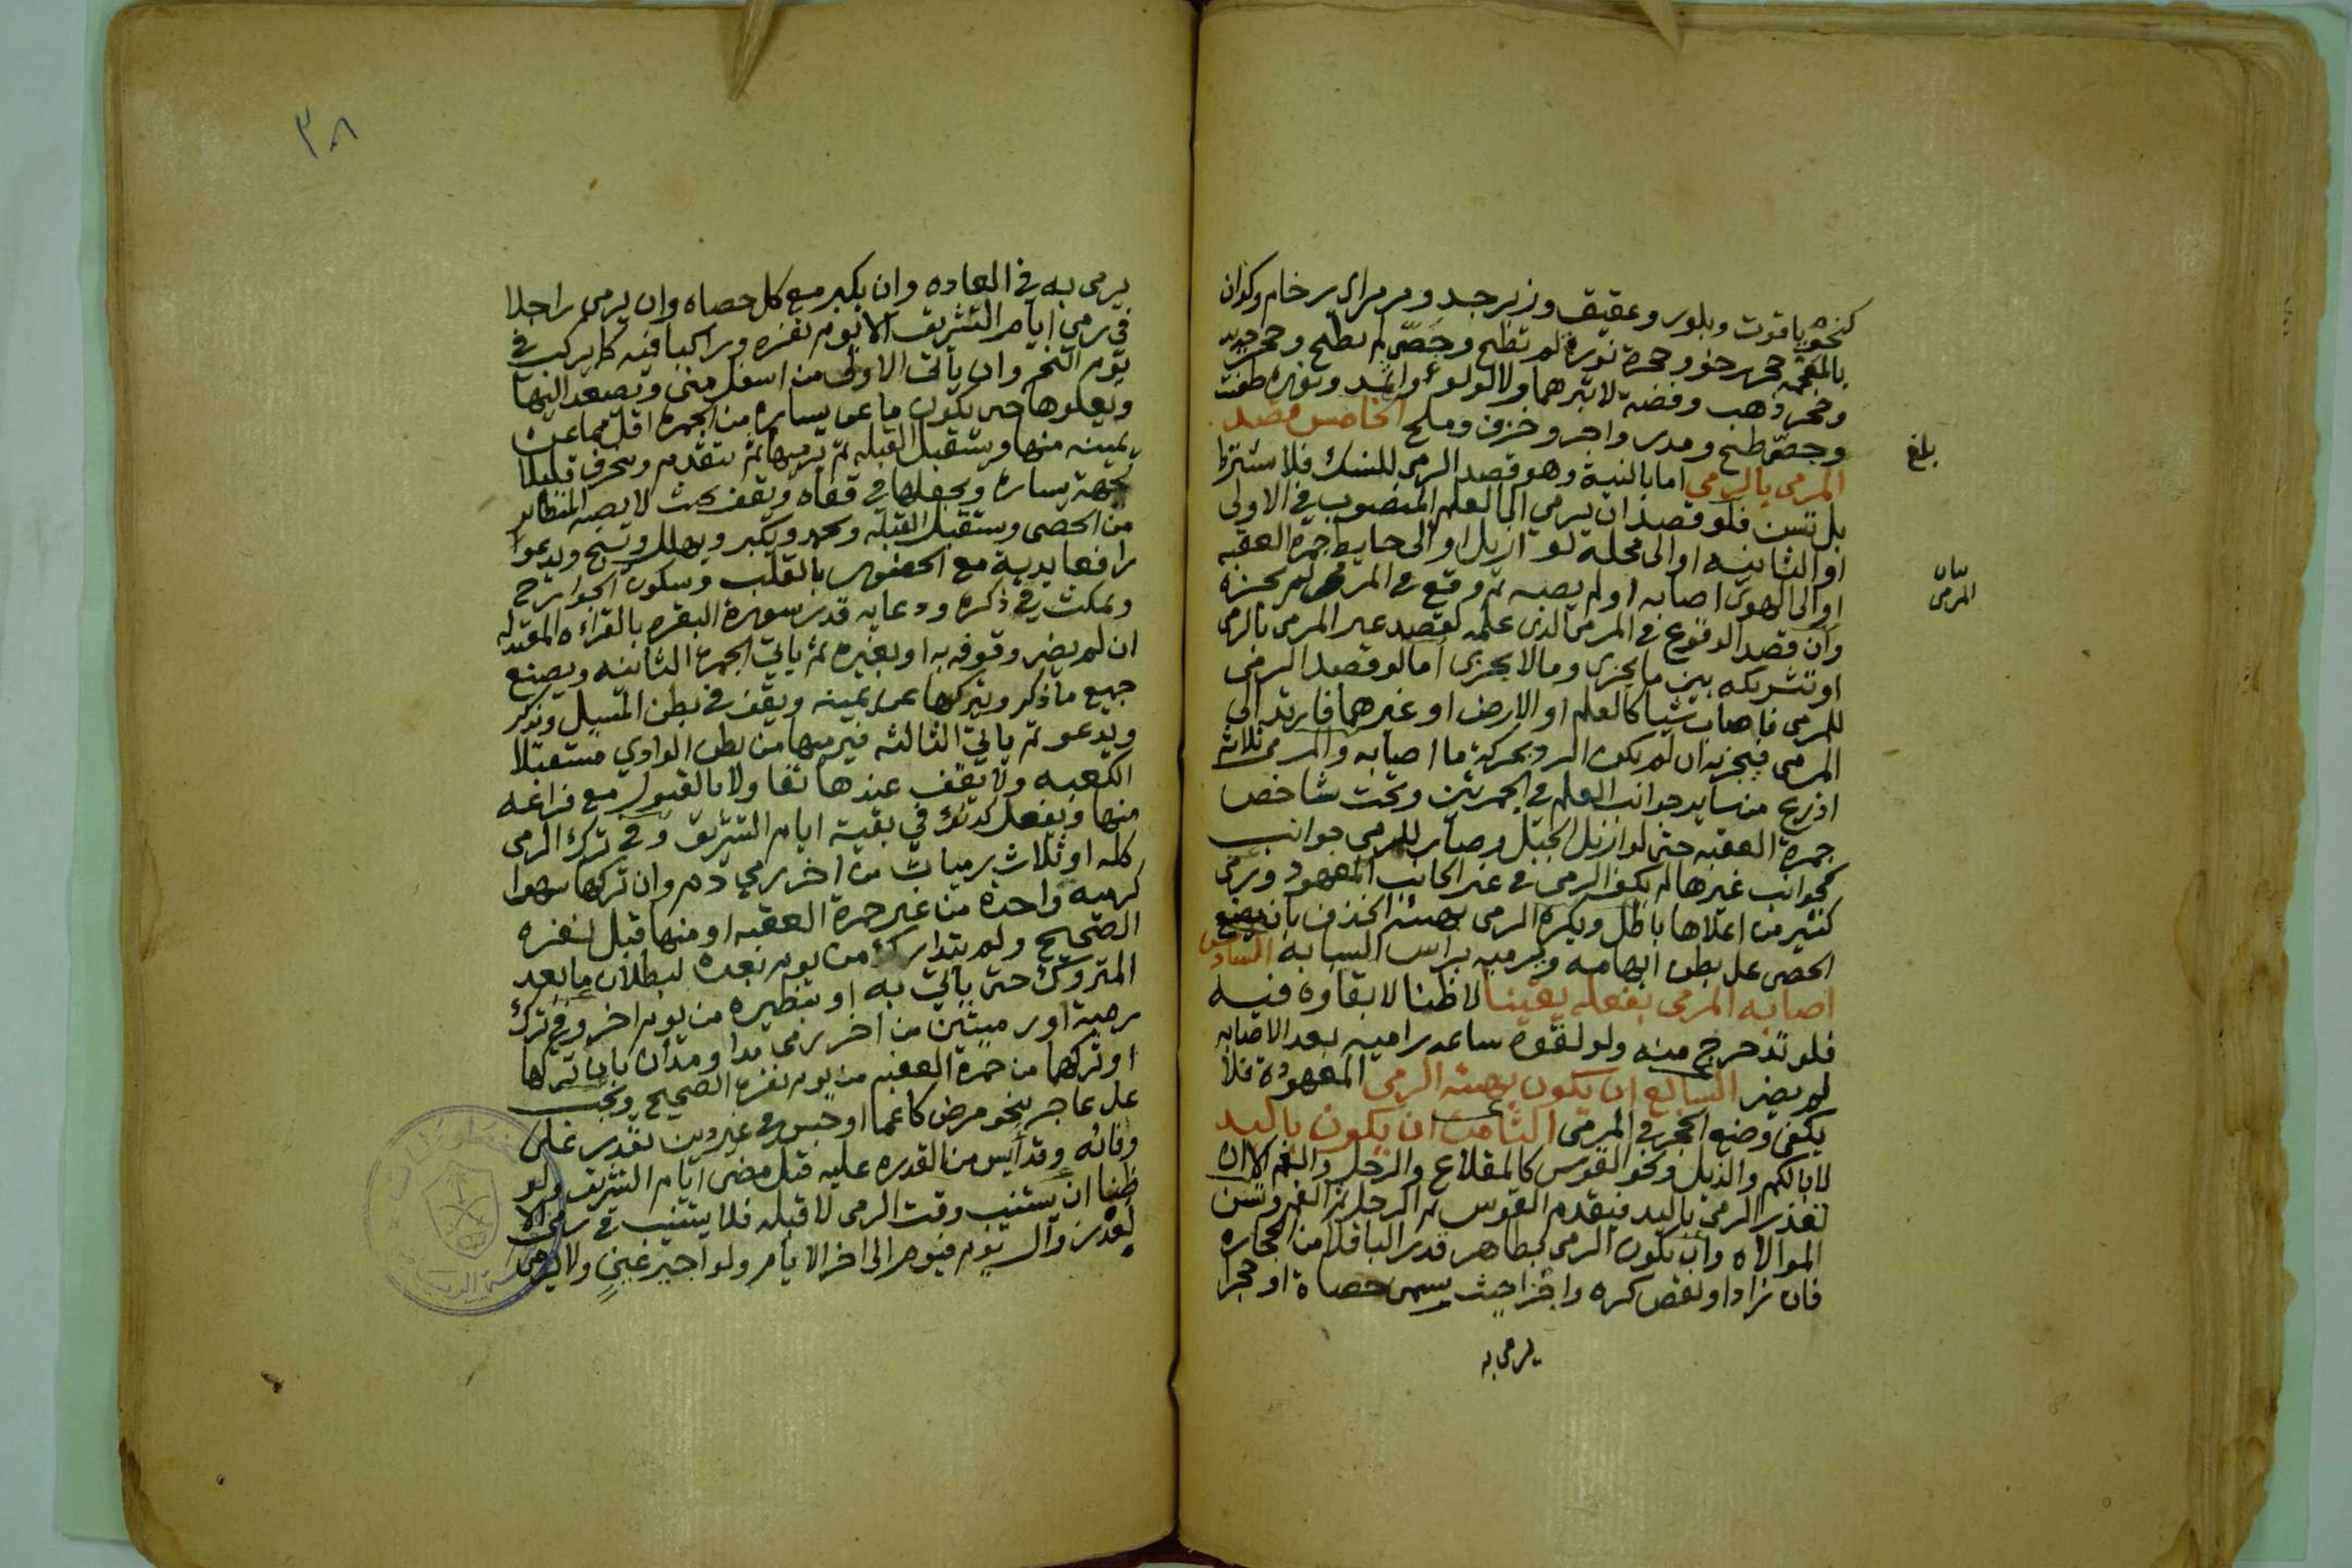 كنحو ياقوت وبلور وعقيق وزبرجد ومرمر اي رخام وكذان
بالمعجمه حجر رخو وحجرة نورة لم تطبخ وجصّ لم يطبخ وحجر حديد
وحجر ذهب وفضة لا تبرهما ولا لولوء واثمد ونوره طفئت
وجصّ طبخ ومدر واجر وخزف وملح الخامس قصد
المرمى بالرمي اما بالنية وهو قصد الرمي للنسك فلا تشترط
بل تسن فلو قصد ان يرمي الى العلم المنصوب في الاولى
او الثانيه او الى محله لو ازيل او الى حايط جمرة العقبه
او الى الهوى اصابه او لم يصبه ثم وقع في المرمى لم يجزه
وان قصد الوقوع في المرمى الذى علمه كقصد غير المرمى بالرمى
او تشريكه بين ما يجزى وما لا يجزى اما لو قصد الرمى
للمرمى فاصاب شيا كالعلم او الارض او غيرهما فارتد الى
المرمى فيجزيه ان لم يكن الرد بحركة ما اصابه والمرمى ثلاثة
اذرع من ساير جوانب العلم في الجمرتين وتحت شاخص
جمرة العقبه حتى لو ازيل الجبل وصار للمرمى جوانب
كجوانب غيرها لم يكف الرمى في غير الجانب المعهود ورمى
كثير من اعلاها باطل ويكره الرمى بهيئة الخذف بان يضع
الحصى على بطن ابهامه ويرميه براس السبابة السادس
اصابه المرمى بفعله يقينا لا ظنا لا بقاوه فيه
فلو تدحرج منه ولو لقوة ساعد راميه بعد الاصابه
لم يضر السابع ان يكون بهيئة الرمى المعهودة فلا
يكفى وضع الحجر في المرمى الثامن ان يكون باليد
لا بالكم والذيل ونحو القوس كالمقلاع والرجل والفم الا ان
تعذر الرمى باليد فيقدم القوس ثم الرجل ثم الفم وتسن
الموالاه وان يكون الرمى بطاهر قدر الباقلا من الحجاره
فان زاد او نقص كره واجزا حيث يسمى حصاة او حجرا
يرمى به
بلغ
بيان
المرمى
٣٨
يرمى به في العاده وان يكبر مع كل حصاه وان يرمى راجلا
في رمى ايام التشريق الا يوم نفره وراكبا فيه كما يركب في
يوم النحر وان يأتى الاولى من اسفل منى ويصعد اليها
ويعلوها حتى يكون ما عن يساره من الجمرة اقل مما عن
يمينه منها ويستقبل القبله ثم يرميها ثم يتقدم وينحرف قليلا
لجهة يساره ويجعلها في قفاه ويقف بحيث لا يصبه المتطاير
من الحصى ويستقبل القبله ويحمد ويكبر ويهلل ويسبح ويدعوا
رافعا يديه مع الحضور بالقلب وسكون الجوارح
ويمكث في ذكره ودعايه قدر سورة البقره بالقراءه المعتدله
ان لم يضر وقوفه به او بغيره ثم ياتى الجمرة الثانيه ويصنع
جميع ما ذكر ويتركها عن يمينه ويقف في بطن المسيل ويذكر
ويدعو ثم ياتى الثالثه فيرميها من بطن الوادي مستقبلا
الكعبه ولا يقف عندها تفا ولا بالقبول مع فراغه
منها ويفعل كذلك في بقية ايام التشريق وفي ترك الرمى
كله او ثلاث رميات من اخر رمي دم وان تركها سهوا
كرميه واحدة من غير جمرة العقبه او منها قبل نفره
الصحيح ولم يتداركه من يوم بعده لبطلان ما بعد
المتروك حتى يأتى به او بنظيره من يوم اخر وفي ترك
رمية او رميتين من اخر رمى مد او مدان بان تركها
او تركهما من جمرة العقبه من يوم نفره الصحيح ويجب
على عاجز بنحو مرض كاغما او حبس في غير دين يقدر على
وفائه وقد أيس من القدره عليه قبل مضى ايام التشريق ولو
ظنا ان يستنيب وقت الرمى لا قبله فلا يستنيب في رمى الا
بعد زوال يوم فيوم الى اخر الايام ولو اجير عين ولا يرمى